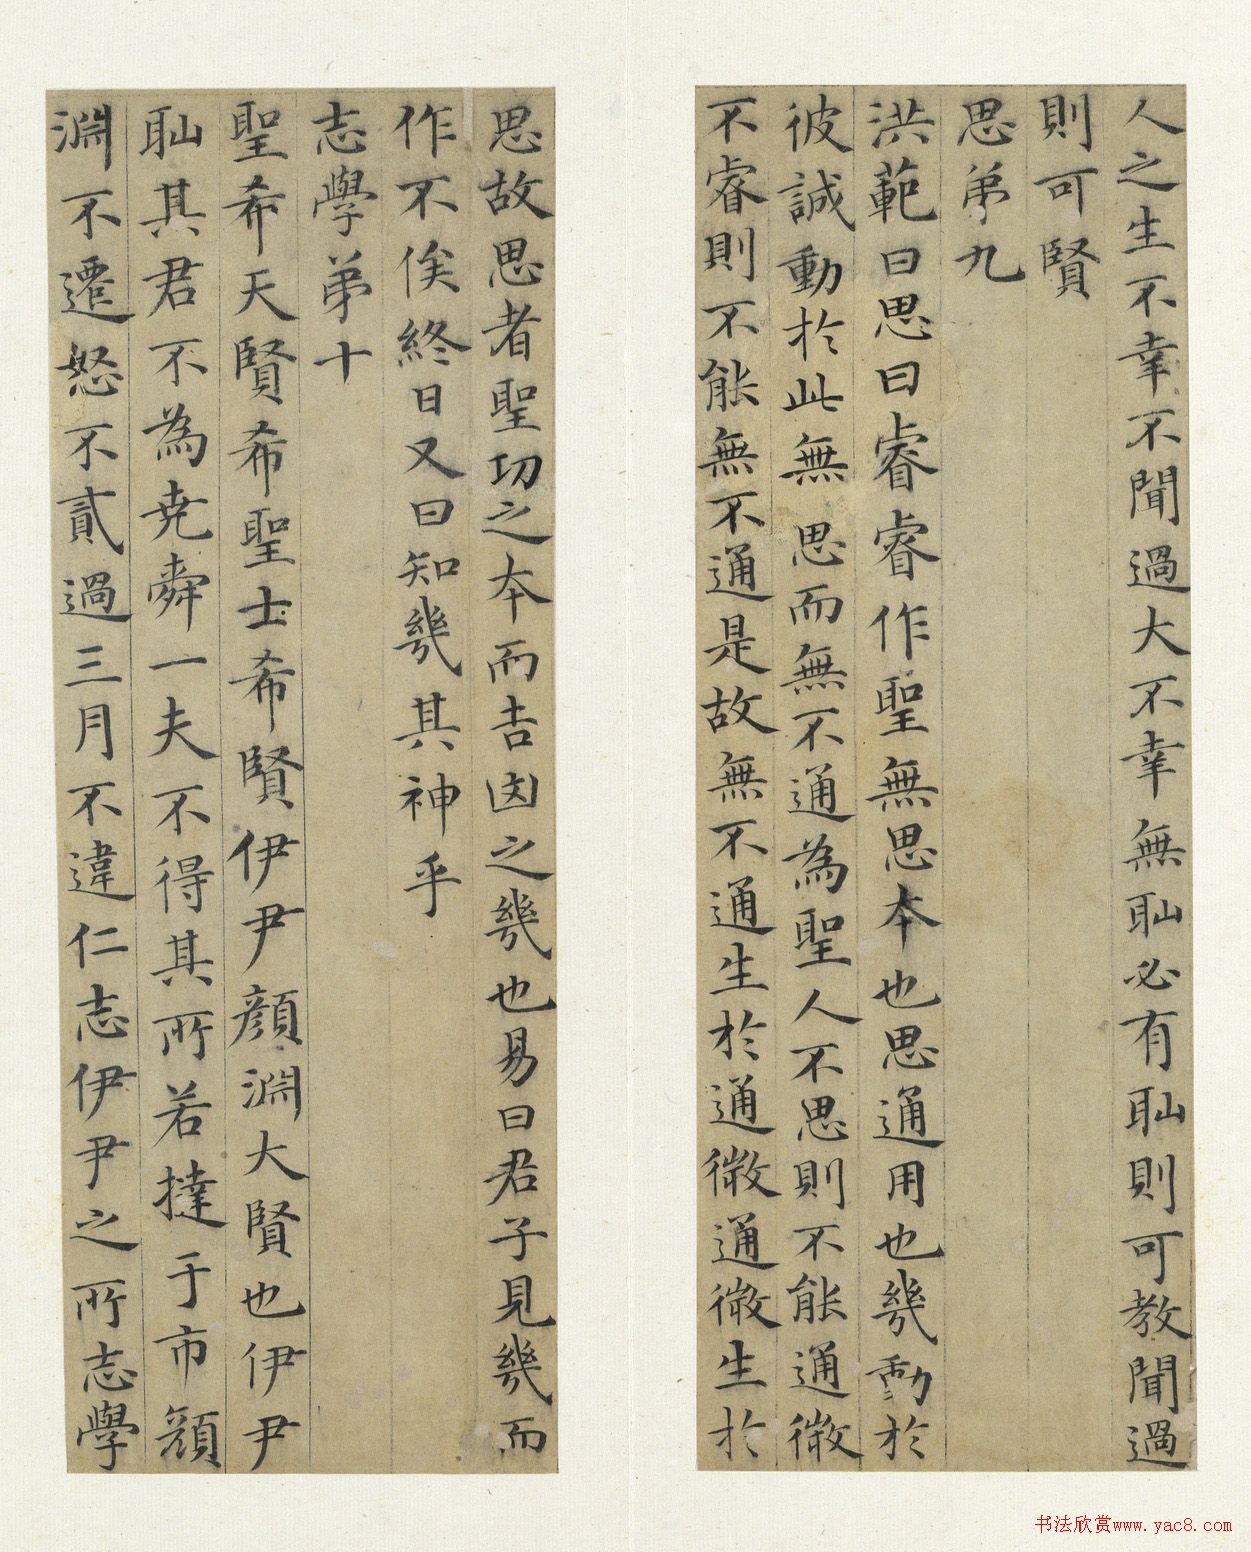 人之生不幸不聞過大不幸無耻必有耻則可教聞過
則可賢
思弟九
洪範曰思曰睿睿作聖無思本也思通用也幾動於
彼誠動於此無思而無不通為聖人不思則不能通微
不睿則不能無不通是故無不通生於通微通微生於
思故思者聖功之本而吉凶之幾也易曰君子見幾而
作不俟終日又曰知幾其神乎
志學弟十
聖希天賢希聖士希賢伊尹顏淵大賢也伊尹
耻其君不為堯舜一夫不得其所若撻于市顏
淵不遷怒不貳過三月不違仁志伊尹之所志學
书法欣赏www.yac8.com